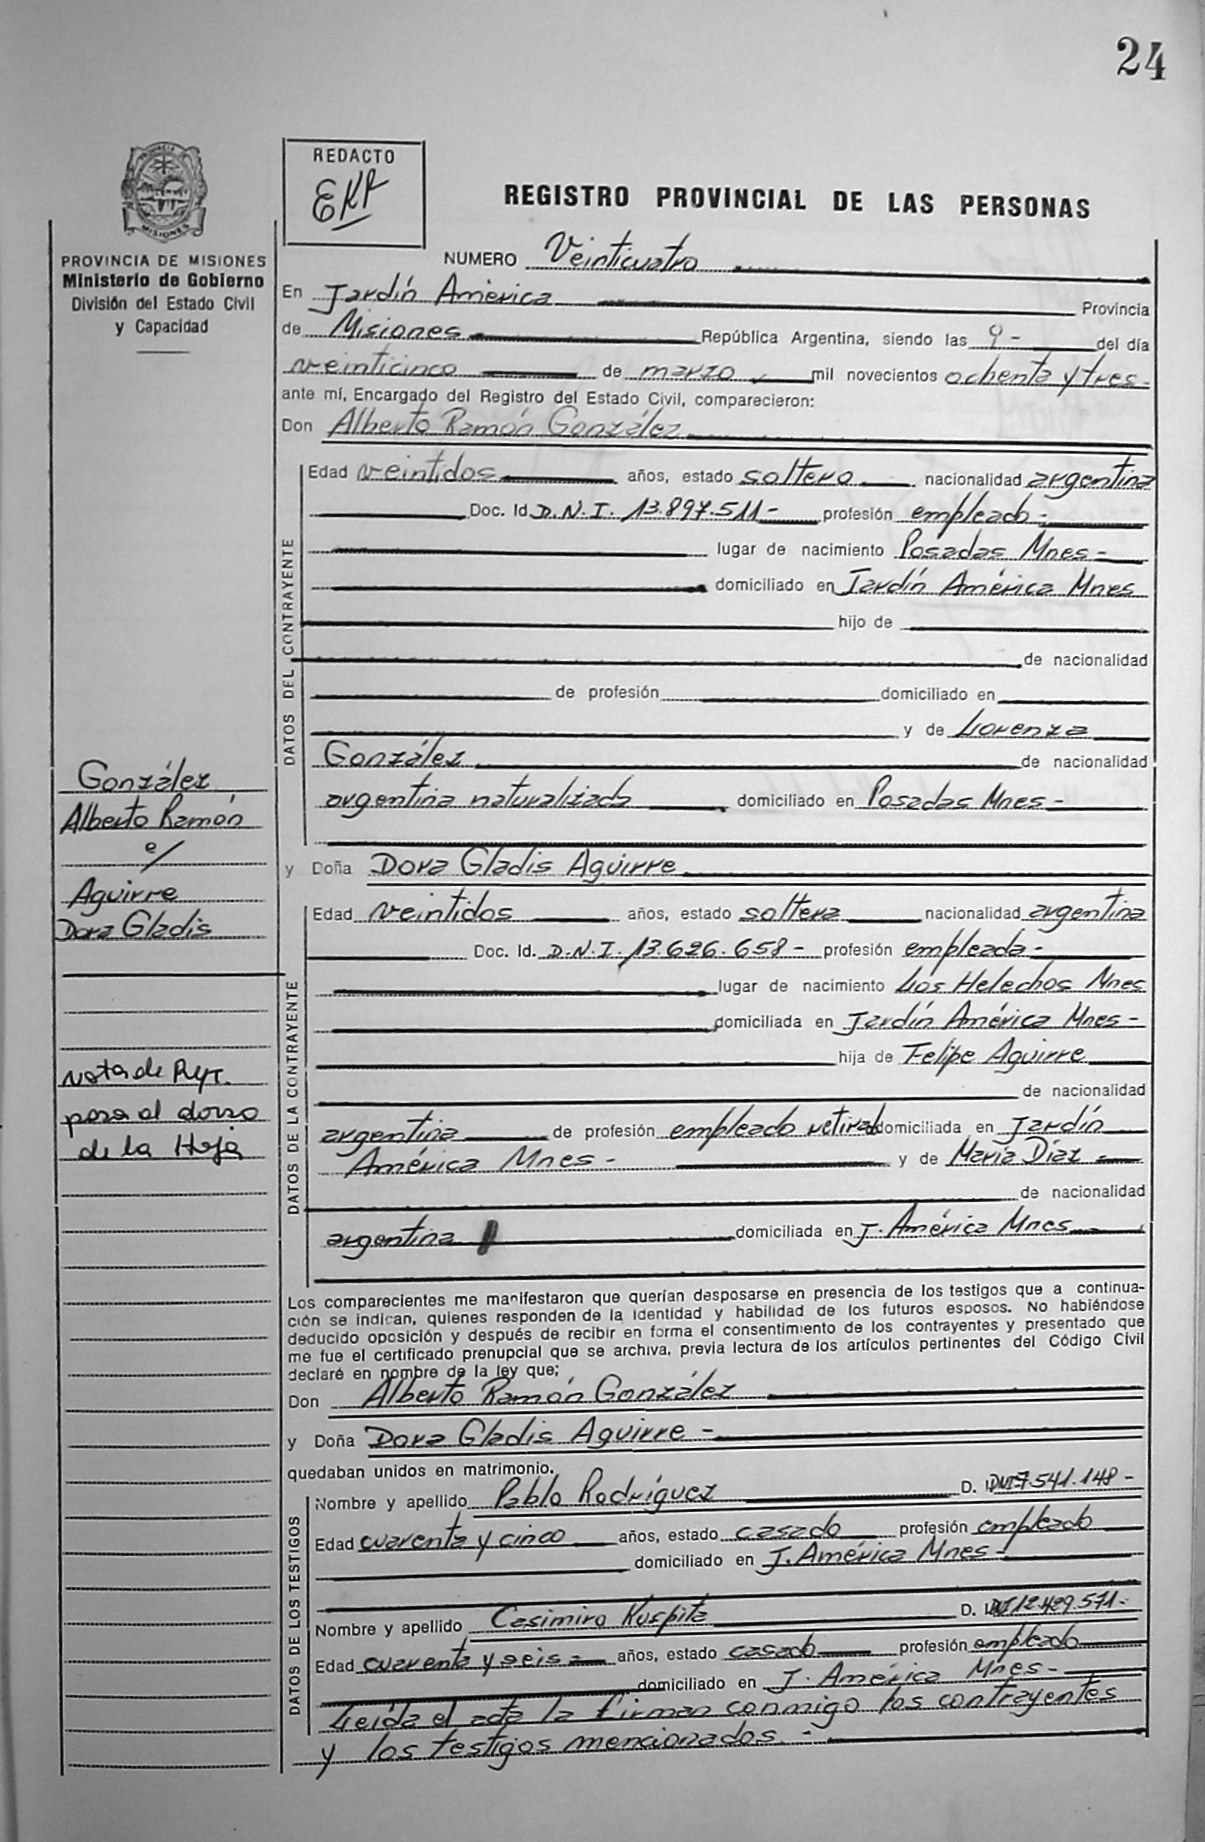 24
REDACTO
EKP
REGISTRO PROVINCIAL DE LAS PERSONAS
MISIONES
PROVINCIA DE MISIONES
Ministerio de Gobierno
División del Estado Civil
y Capacidad
NUMERO Veinticuatro
En Jardín América Provincia
de Misiones República Argentina, siendo las 9 - del día
veinticinco de marzo mil novecientos ochenta y tres -
ante mí, Encargado del Registro del Estado Civil, comparecieron:
Don Alberto Ramón González
DATOS DEL CONTRAYENTE
Edad veintidos años, estado soltero nacionalidad argentina
Doc. Id D.N.I. 13.897.511 - profesión empleado -
lugar de nacimiento Posadas Mnes -
domiciliado en Jardín América Mnes
hijo de
de nacionalidad
de profesión domiciliado en
y de Lorenza
González de nacionalidad
argentina naturalizada domiciliado en Posadas Mnes -
González
Alberto Ramón
e/
Aguirre
Dora Gladis
y Doña Dora Gladis Aguirre
DATOS DE LA CONTRAYENTE
Edad veintidos años, estado soltera nacionalidad argentina
Doc. Id. D.N.I. 13.626.658 - profesión empleada -
lugar de nacimiento Los Helechos Mnes
domiciliada en Jardín América Mnes -
hija de Felipe Aguirre
de nacionalidad
argentina de profesión empleado retirado domiciliada en Jardín
América Mnes - y de María Díaz -
de nacionalidad
argentina domiciliada en J. América Mnes
nota de
pasa al dorso
de la Hoja
Los comparecientes me manifestaron que querían desposarse en presencia de los testigos que a continua-
ción se indican, quienes responden de la identidad y habilidad de los futuros esposos. No habiéndose
deducido oposición y después de recibir en forma el consentimiento de los contrayentes y presentado que
me fue el certificado prenupcial que se archiva, previa lectura de los artículos pertinentes del Código Civil
declaré en nombre de la ley que;
Don Alberto Ramón González
y Doña Dora Gladis Aguirre -
quedaban unidos en matrimonio.
DATOS DE LOS TESTIGOS
Nombre y apellido Pablo Rodríguez D. DNI 7.541.148 -
Edad cuarenta y cinco años, estado casado profesión empleado
domiciliado en J. América Mnes -
Nombre y apellido Casimiro Kuspita D. 12.429.571 -
Edad cuarenta y seis - años, estado casado profesión empleado
domiciliado en J. América Mnes -
Leída el acta la firman conmigo los contrayentes
y los testigos mencionados. -